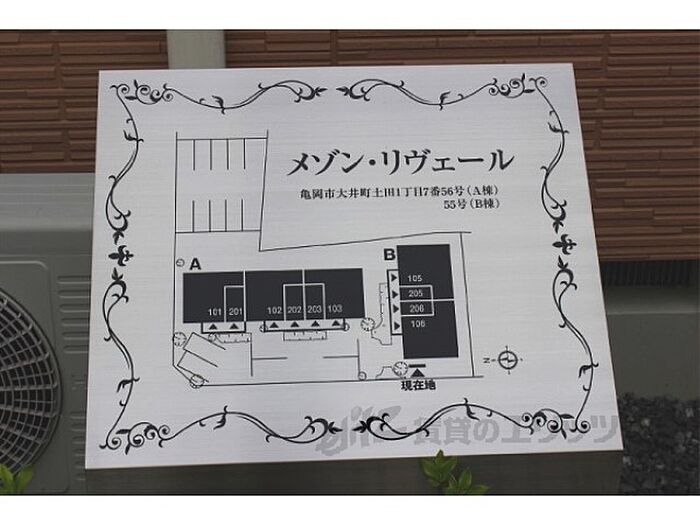 メゾン・リヴェール
亀岡市大井町土田1丁目7番56号(A棟)
55号(B棟)
A
B
101 201 102 202 203 103
105
205
206
106
N
現在地
賃貸のエリッツ